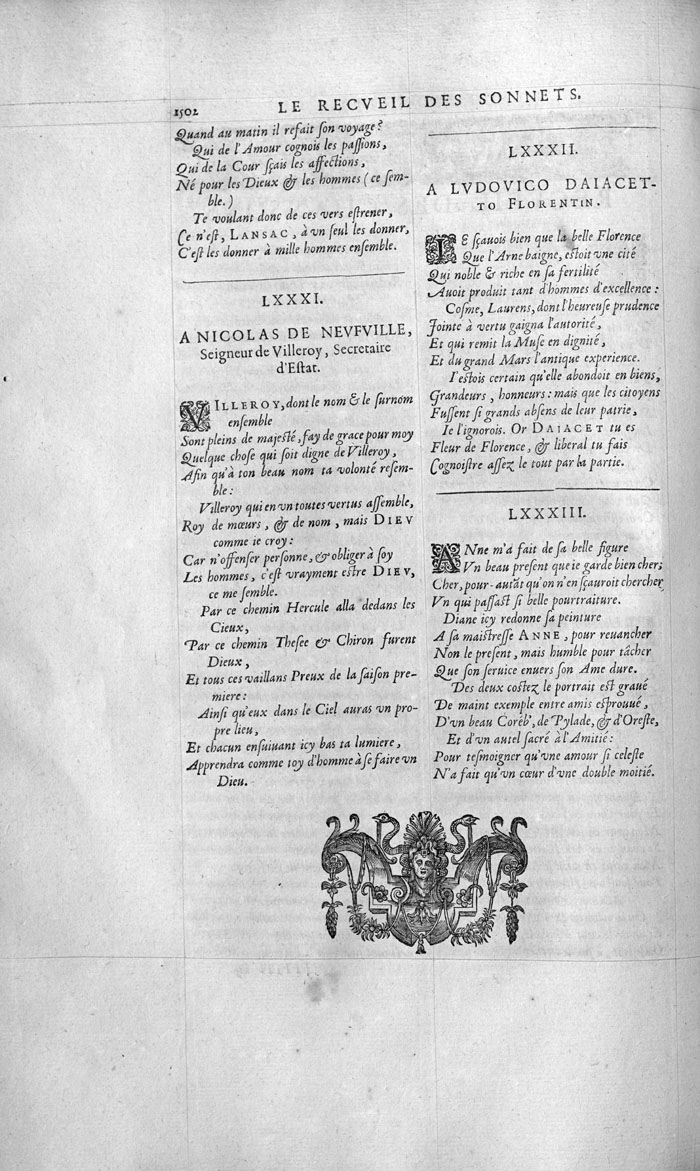 1502
LE RECVEIL DES SONNETS.
Quand au matin il refait ſon voyage?
Qui de l'Amour cognois les paſſions,
Qui de la Cour ſçais les affections,
Né pour les Dieux & les hommes (ce ſem-
ble.)
Te voulant donc de ces vers eſtrener,
Ce n'eſt, LANSAC, à vn ſeul les donner,
C'eſt les donner à mille hommes enſemble.
LXXXI.
A NICOLAS DE NEVFVILLE,
Seigneur de Villeroy, Secretaire
d'Eſtat.
VILLEROY, dont le nom & le ſurnom
enſemble
Sont pleins de majeſté, fay de grace pour moy
Quelque choſe qui ſoit digne de Villeroy,
Afin qu'à ton beau nom ta volonté reſem-
ble:
Villeroy qui en vn toutes vertus aſſemble,
Roy de mœurs, & de nom, mais DIEV
comme ie croy:
Car n'offenſer perſonne, & obliger à ſoy
Les hommes, c'eſt vrayment eſtre DIEV,
ce me ſemble.
Par ce chemin Hercule alla dedans les
Cieux,
Par ce chemin Theſee & Chiron furent
Dieux,
Et tous ces vaillans Preux de la ſaiſon pre-
miere:
Ainſi qu'eux dans le Ciel auras vn pro-
pre lieu,
Et chacun enſuiuant icy bas ta lumiere,
Apprendra comme toy d'homme à ſe faire vn
Dieu.
LXXXII.
A LVDOVICO DAIACET-
TO FLORENTIN.
IE ſçauois bien que la belle Florence
Que l'Arne baigne, eſtoit vne cité
Qui noble & riche en ſa fertilité
Auoit produit tant d'hommes d'excellence:
Coſme, Laurens, dont l'heureuſe prudence
Jointe à vertu gaigna l'autorité,
Et qui remit la Muſe en dignité,
Et du grand Mars l'antique experience.
I'eſtois certain qu'elle abondoit en biens,
Grandeurs, honneurs: mais que les citoyens
Fuſſent ſi grands abſens de leur patrie,
Ie l'ignorois. Or DAIACET tu es
Fleur de Florence, & liberal tu fais
Cognoiſtre aſſez le tout par la partie.
LXXXIII.
ANne m'a fait de ſa belle figure
Vn beau preſent que ie garde bien cher;
Cher, pour-autāt qu'on n'en ſçauroit chercher
Vn qui paſſaſt ſi belle pourtraiture.
Diane icy redonne ſa peinture
A ſa maiſtreſſe ANNE, pour reuancher
Non le preſent, mais humble pour tâcher
Que ſon ſeruice enuers ſon Ame dure.
Des deux coſtez le portrait eſt graué
De maint exemple entre amis eſprouué,
D'vn beau Corēb', de Pylade, & d'Oreſte,
Et d'vn autel ſacré à l'Amitié:
Pour teſmoigner qu'vne amour ſi celeſte
N'a fait qu'vn cœur d'vne double moitié.